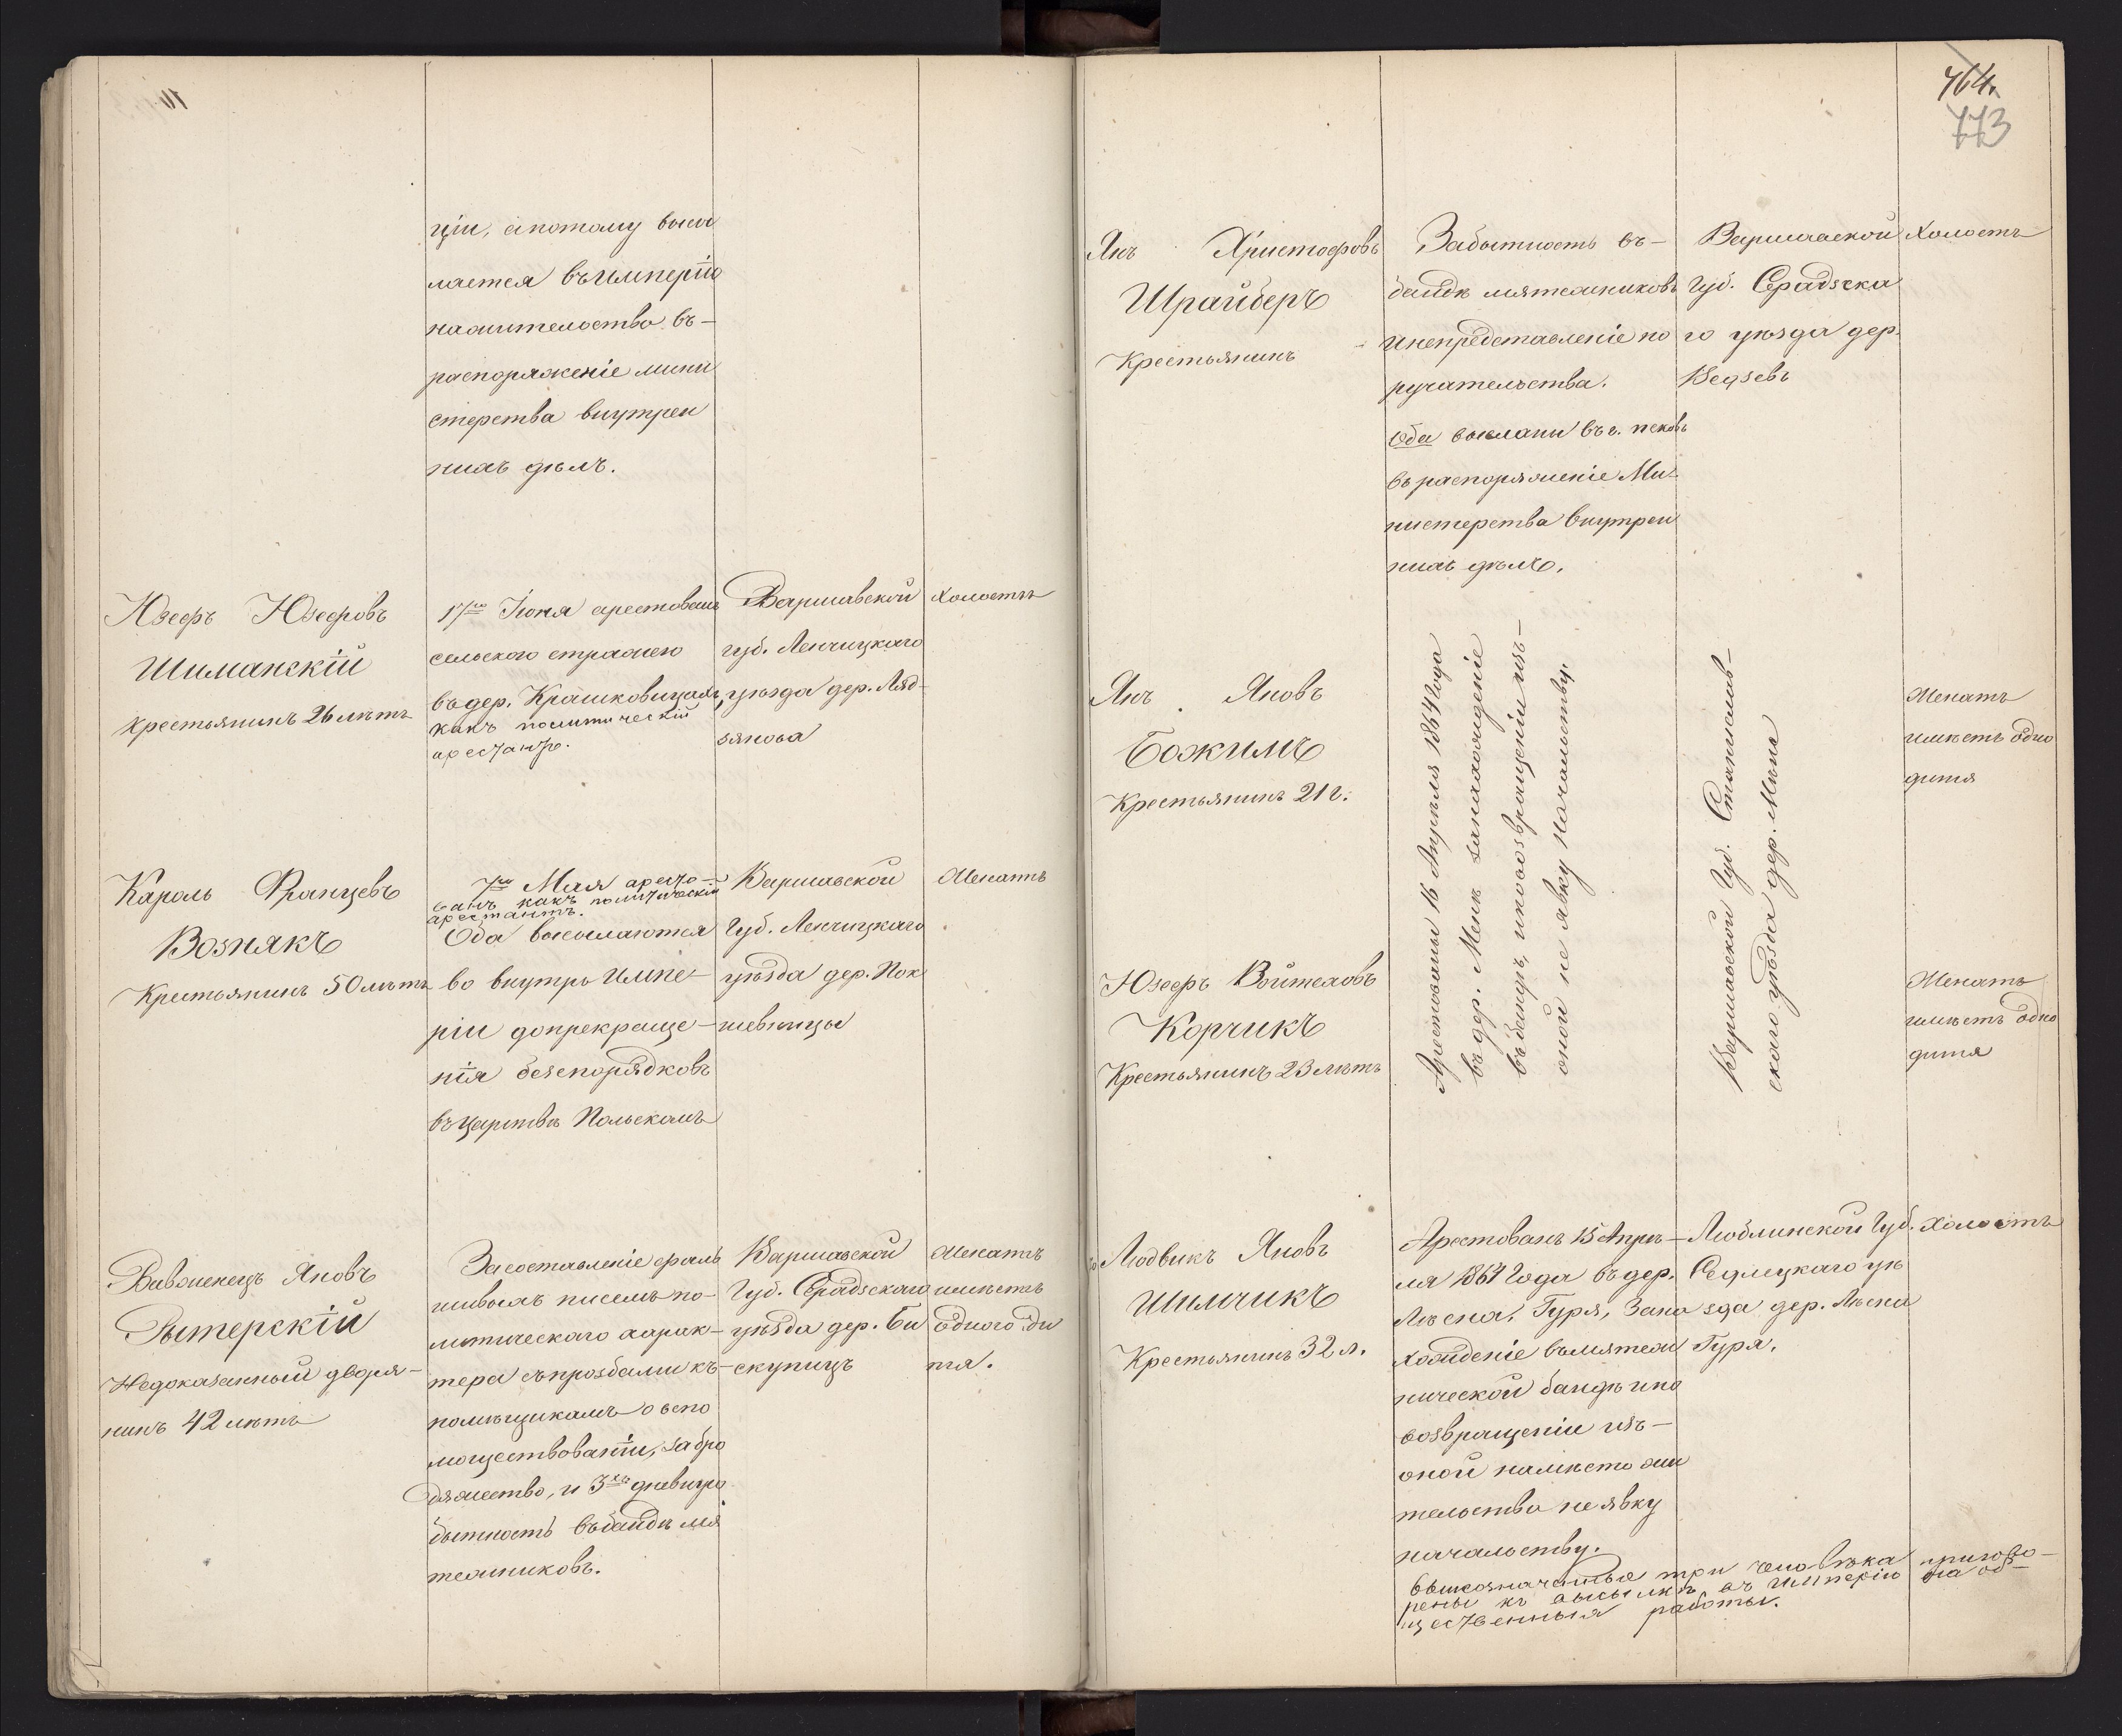 ціи, а потому высы
лается въ имперію
на жительство въ-
распоряженіе мини
стерства внутрен
нихъ дѣлъ.
Юзефъ Юзефовъ
Шиманскій
крестьянинъ 26 лѣтъ
1го Іюня арестованъ
сельскою стражею
въ дер. Крашковицахъ,
какъ политическій
арестантъ.
Варшавской
губ. Ленчицкаго
уѣзда дер. Ляд-
зянова
холостъ
Кароль Францевъ
Вознякъ
Крестьянинъ 50 лѣтъ
7го Мая аресто-
ванъ какъ политическій
арестантъ.
Оба высылаются
во внутрь Импе-
ріи до прекраще-
нія безпорядковъ
въ Царствѣ Польскомъ
Варшавской
Губ. Ленчицкаго
уѣзда дер. Пок
шевницы
Женатъ
Вавженецъ Яновъ
Рытерскій
Недоказанный дворя-
нинъ 42 лѣтъ
За составленіе фаль
шивыхъ писемъ по-
литическаго харак-
тера съ прозбами къ-
помѣщикамъ о вспо
моществованіи, за бро
дяжество, и 3хъ дневную
бытность въ бандѣ мя
тежниковъ.
Варшавской
Губ. Серадзскаго
уѣзда дер. Би
скупицъ
Женатъ
имѣетъ
одного ди
тя.
464.
773
Янъ Христофовъ
Шрайберъ
Крестьянинъ
За бытность въ-
бандѣ мятежниковъ
и непредставленіе по
ручательства.
Оба высланы въ г. Псковъ
въ распоряженіе Ми-
нистерства внутрен
нихъ дѣлъ.
Варшавской
Губ. Серадзска
го уѣзда дер.
Ведзевъ
Холостъ
Янъ Яновъ
Божимъ
Крестьянинъ 21 г.
Арестованы 16 Апрѣля 1864 года
въ дер. Менк за нахожденіе
въ бандѣ, и по возвращеніи изъ-
оной не явку Начальству.
Варшавской Губ. Станислав-
скаго уѣзда дер. Мѣня
Женатъ
имѣетъ одно
дитя
Юзефъ Войтеховъ
Корчикъ
Крестьянинъ 23 лѣтъ
Женатъ
имѣетъ одно
дитя
Людвикъ Яновъ
Шимчикъ
Крестьянинъ 32 л.
Арестованъ 15 Апрѣ-
ля 1864 года въ дер.
Лѣсна, Гуря, За на
хожденіе въ мятеж
нической бандѣ и по
возвращеніи изъ-
оной на мѣсто жи
тельства не явку
начальству.
Люблинской Губ.
Седлецкаго уѣ
зда дер. Лѣсна
Гуря.
холостъ
Вышеозначенные три человѣка пригово-
рены къ высылкѣ въ Имперію на об-
щественныя работы.